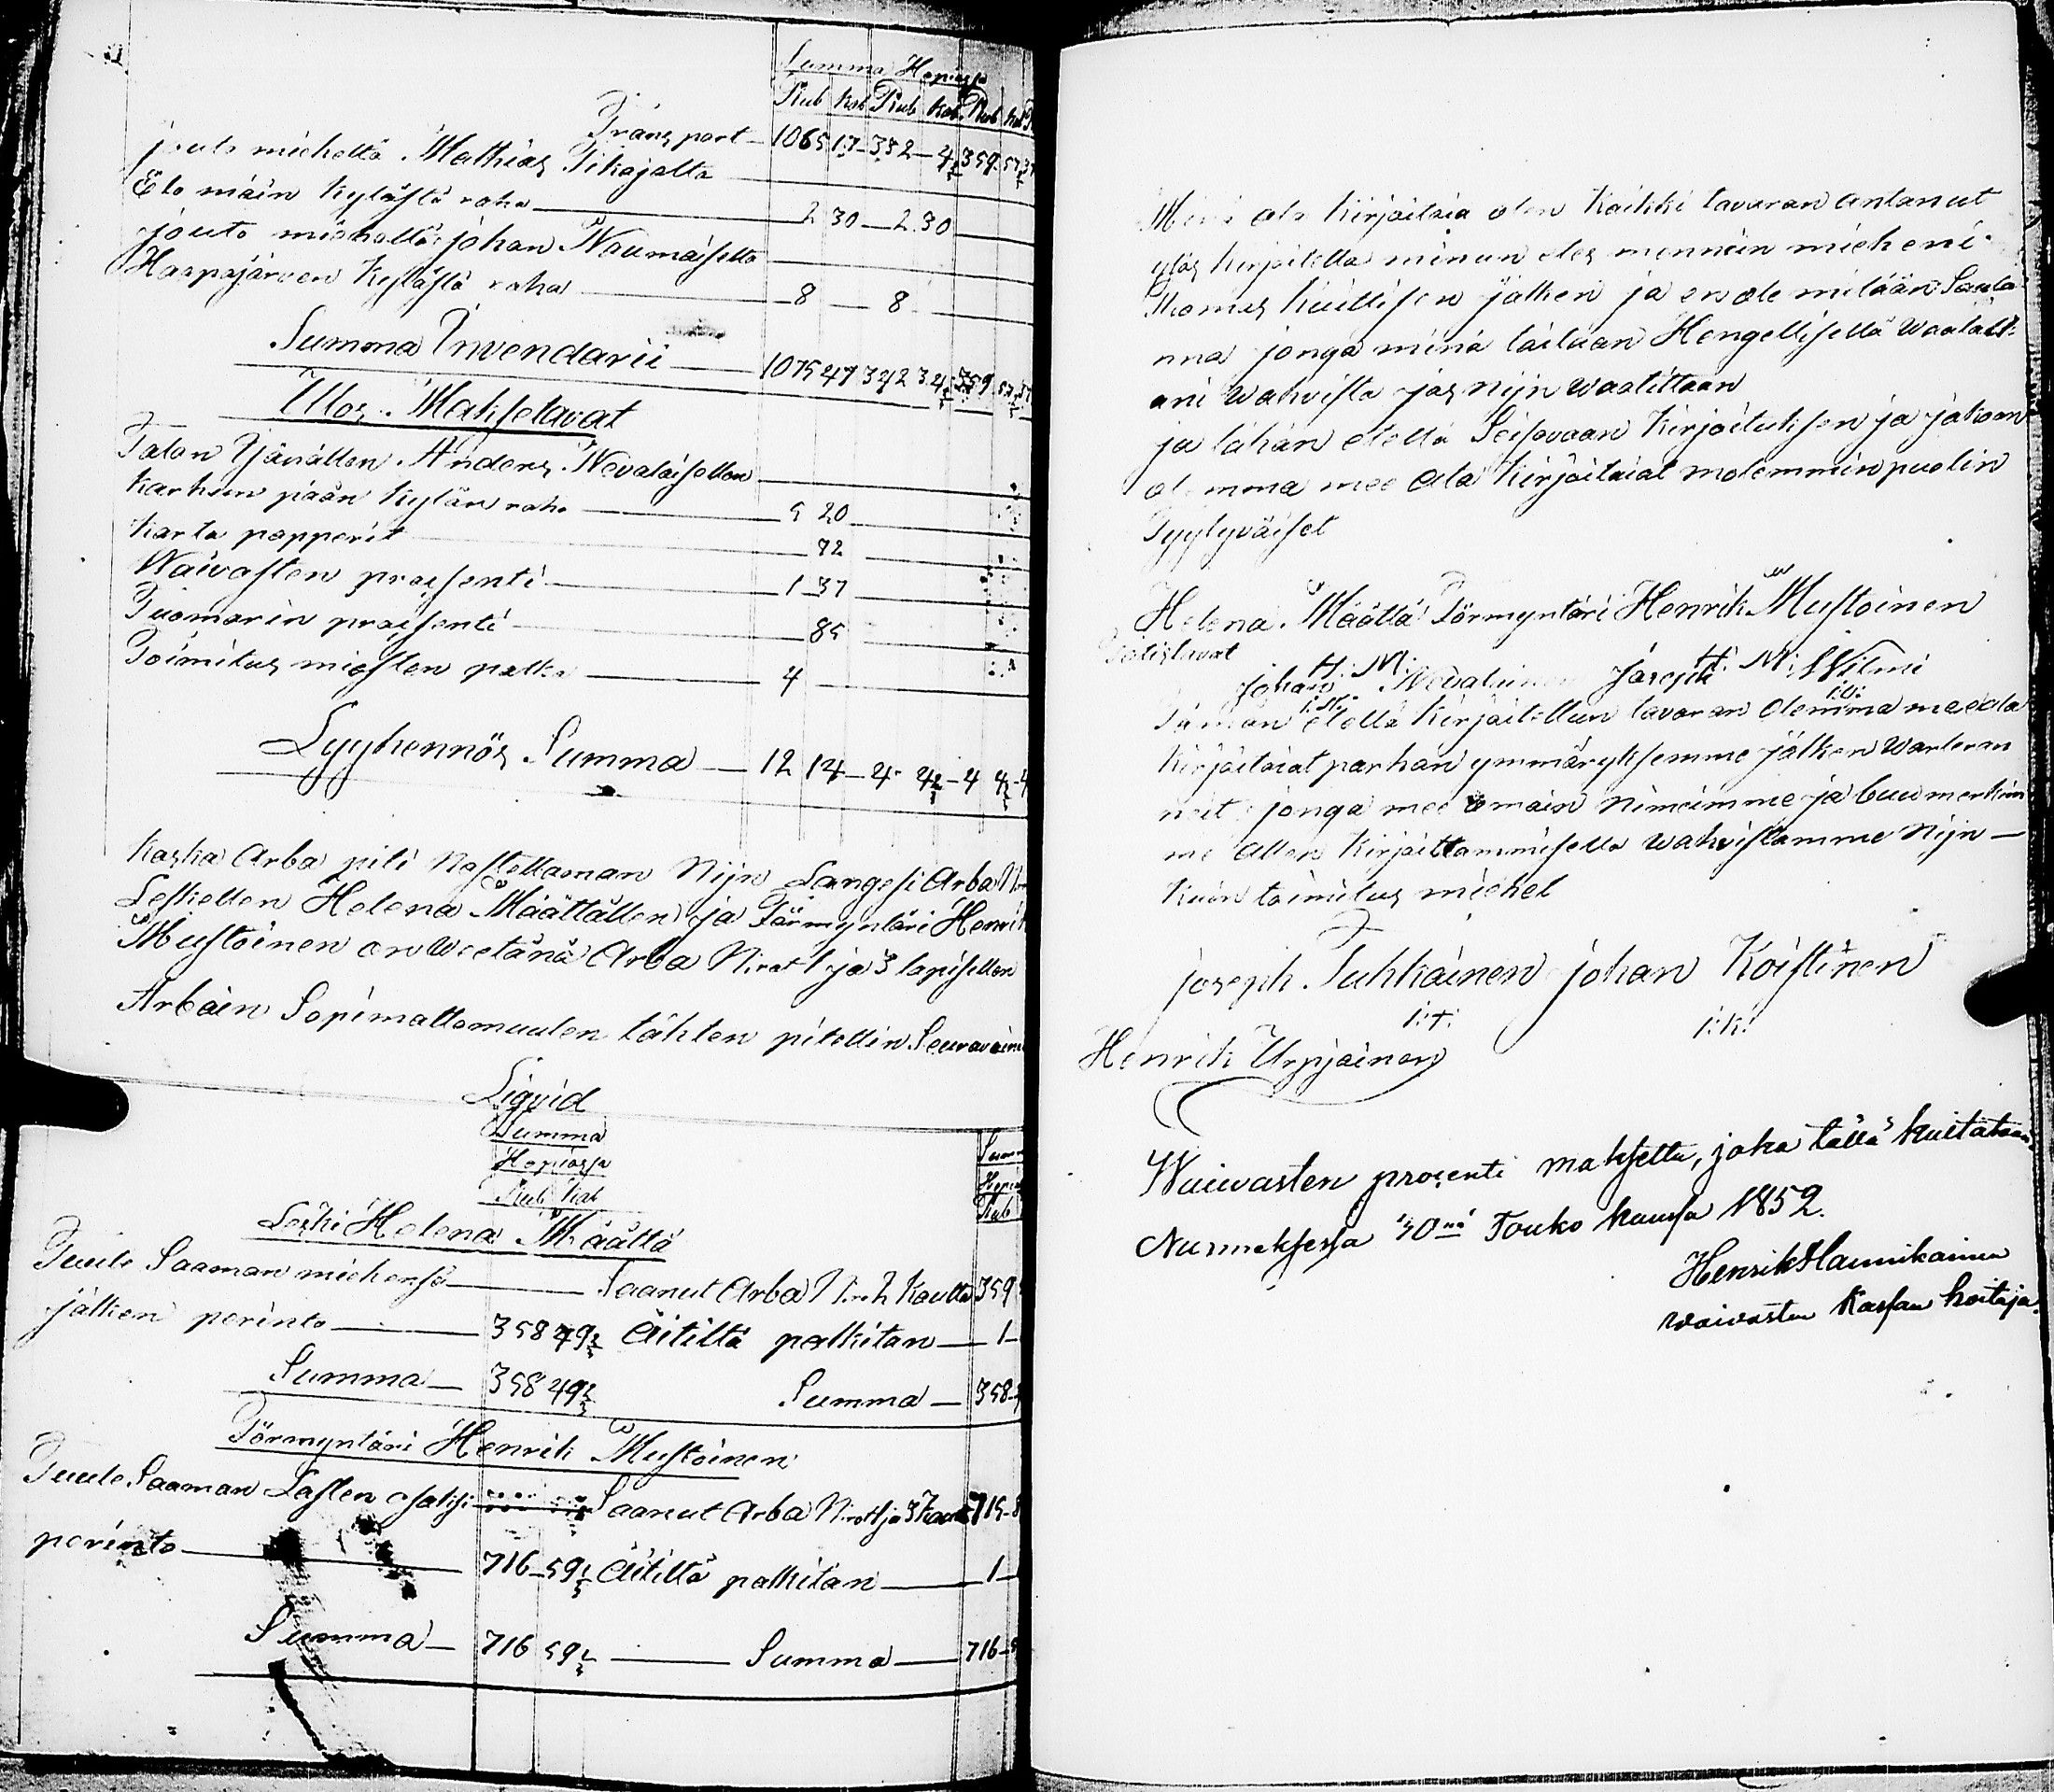 Summa Hopiassa
Rub kob Rub kob Rub kob
Transport 1065 17 332 4 2/3 359 57 2/3
jouto miehellä Mathias Tikajalta
Elo mäin kylästä raha 2 30 2 30
jouto miehellä johan Naumaisella
Haapajärven kylästä raha 8 8
Summa Invendarii 1075 47 342 34 2/3 359 57 2/3
Ulos Maksetavat
Talon Ysävällen Anders Nevalaisellen
karhun pään kylän raha 5 20
karta papperit 72
Waivasten praesenti 1 37
Tuomarin praesenti 85
Toimitus miesten palka 4
Lyyhennös Summa 12 14 4 4 2/3 4 4 2/3
Koska Arba piti Nostettaman Nijn Langesi Arba N
Leskellen Helena Määttällen ja Förmyntäri Henrik
Mustoinen on weetänä Arba N:rot 1 ja 3 lapsillen
Arbain Sopimattomuuten tähten pitettin Seuravain
Liqvid
Summa
Hopiassa
Rub kob
Rub
Leski Helena Määttä
Tuule Saaman miehensä Saanut Arba N:ro 2 kautta 359
jälken perintö 358 49 2/3 Äitiltä palkitan 1
Summa 358 49 2/3 Summa 358
Förmyntäri Henrik Mustoinen
Tuule Saaman Lasten osaksi Saanut Arba N:rot 1 ja 3 kautta 715
perintö 716 59 1/3 Äitiltä palkitan 1
Summa 716 59 1/3 Summa 716
ala kirjoitaia olen kaikki tavaran antanut
ylös kirjoitella minun edes mennein mieheni
Thomas kuillisen jälken ja en ole mitään Sala
nna jonga minä taitaan Hengellisellä Walall
ani Wahvista jos nijn Waatittaan
ja tähän etellä Seisovaan kirjoituksen ja jakoon
olemma mee ala kirjoitaiat molemmin puolin
Tyytyväiset
Helena Määttä Förmyntäri Henrik Mustoinen
H: M: H: M:
Totistavat
Johan Nevalainen Joseph Wilmi
Tämän etellä kirjoitettun tavaran olemma mee ala
kirjoitaiat parhan ymmäryksemme jälken Warteran
neit jonga mee omain Nimeimme ja buumerkim
me allen kirjoittammisella Wahvistamme Nijn
kuin toimitus miehet
joseph Tuhkainen johan Koistinen
I:T: I:K:
Henrik Urpiainen
Waivasten procenti maksettu, joka tällä kuitataan
Nurmeksessa 30nä Touko kuussa 1852.
Henrik Hannikainen
waivasten Kassan hoitaja.